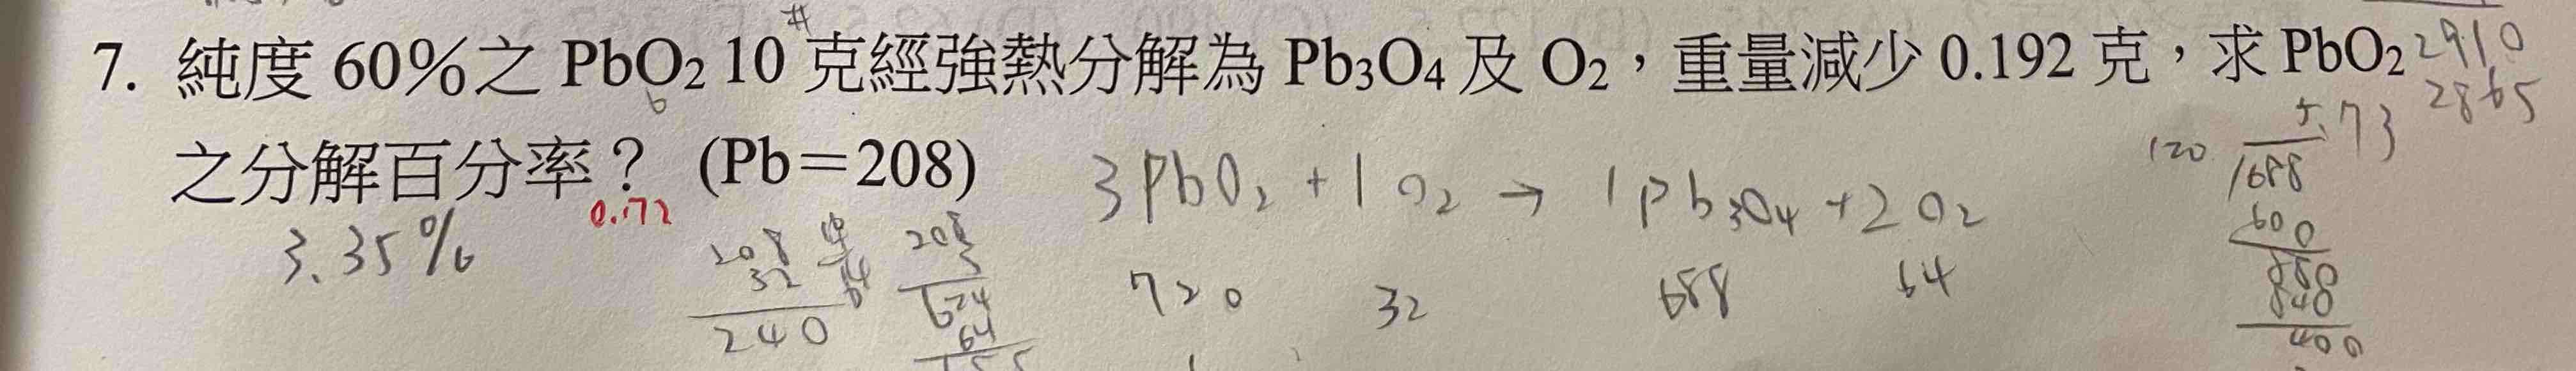 7. 純度 60%之 PbO₂ 10 克經強熱分解為 Pb₃O₄ 及 O₂，重量減少 0.192 克，求 PbO₂
6
2910
2865
之分解百分率？ (Pb＝208)
3PbO₂ + 1O₂ → 1Pb₃O₄ + 2O₂
720 32 688 64
3.35%
208
32
240
208
3
624
64
5.73
120 1688
600
880
840
400